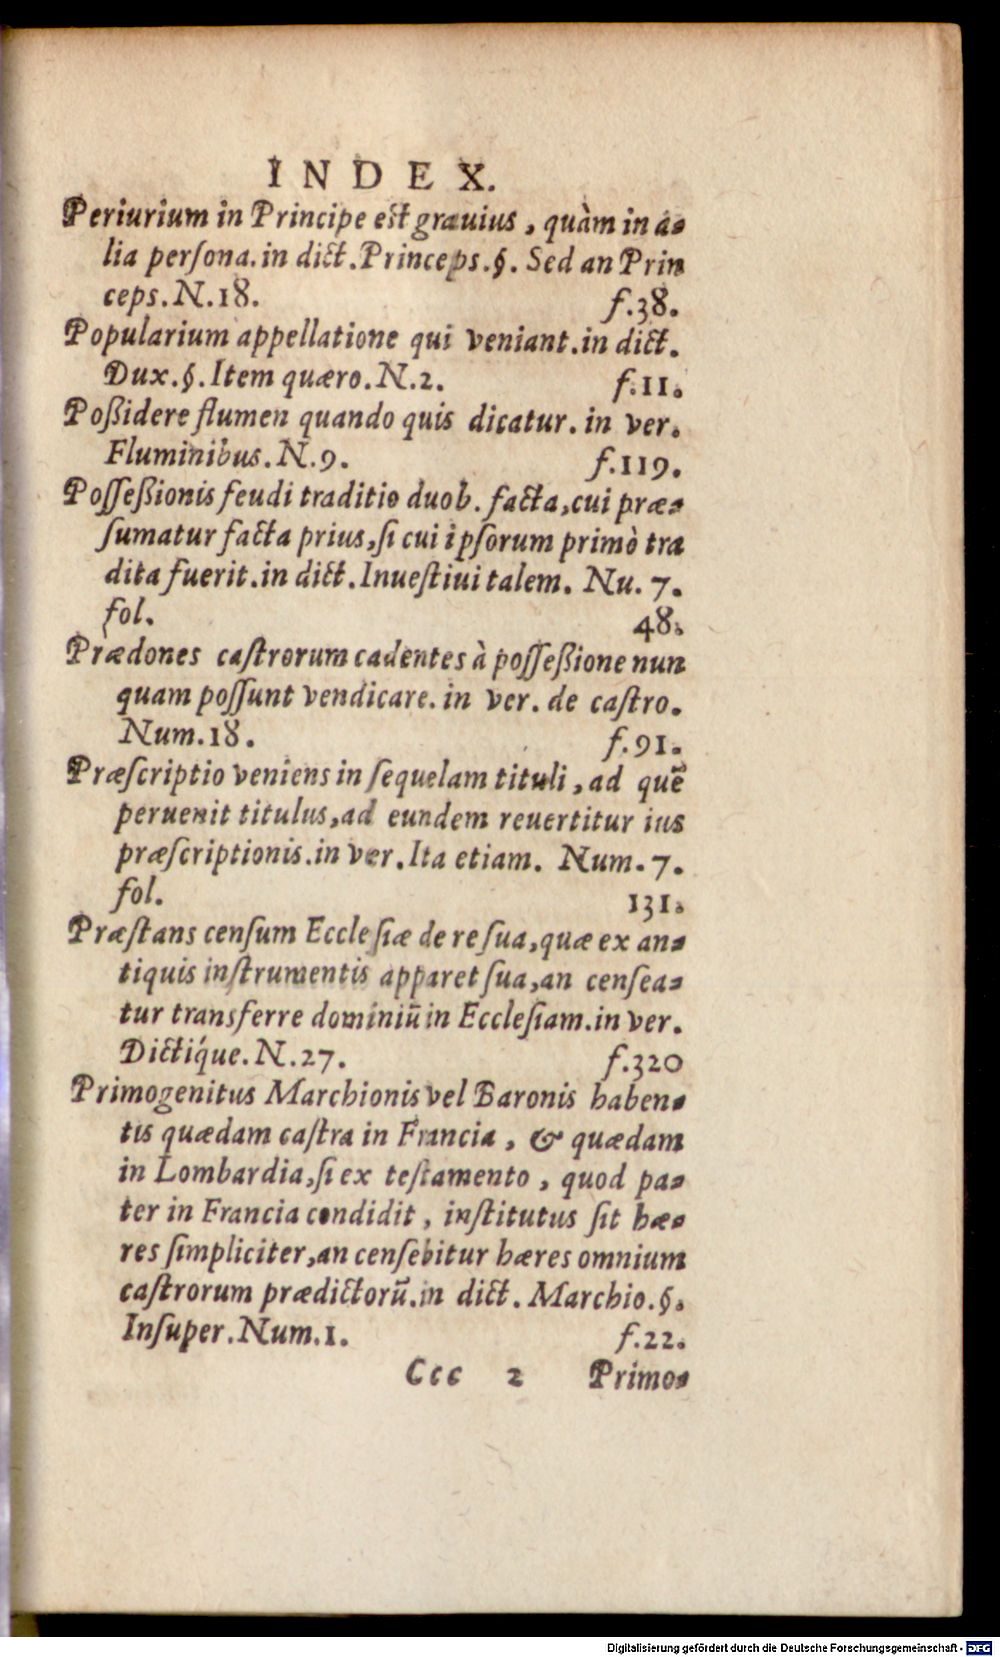 INDEX.
Periurium in Principe est grauius, quàm in a-
lia perſona. in dict. Princeps. §. Sed an Prin
ceps. N. 18. f. 38.
Popularium appellatione qui veniant. in dict.
Dux. §. Item quæro. N. 2. f. 11.
Poßidere flumen quando quis dicatur. in ver.
Fluminibus. N. 9. f. 119.
Poſſeßionis feudi traditio duob. facta, cui præ-
ſumatur facta prius, ſi cui ipſorum primò tra
dita fuerit. in dict. Inueſtiui talem. Nu. 7.
fol. 48.
Prædones caſtrorum cadentes à poſſeßione nun
quam poſſunt vendicare. in ver. de caſtro.
Num. 18. f. 91.
Præſcriptio veniens in ſequelam tituli, ad quẽ
peruenit titulus, ad eundem reuertitur ius
præſcriptionis. in ver. Ita etiam. Num. 7.
fol. 131.
Præſtans cenſum Eccleſiæ de re ſua, quæ ex an-
tiquis inſtrumentis apparet ſua, an cenſea-
tur transferre dominiũ in Eccleſiam. in ver.
Dictiq́ue. N. 27. f. 320
Primogenitus Marchionis vel Baronis haben-
tis quædam caſtra in Francia, & quædam
in Lombardia, ſi ex teſtamento, quod pa-
ter in Francia condidit, inſtitutus ſit hæ-
res ſimpliciter, an cenſebitur hæres omnium
caſtrorum prædictorũ. in dict. Marchio. §.
Inſuper. Num. 1. f. 22.
Ccc 2 Primo-
Digitalisierung gefördert durch die Deutsche Forschungsgemeinschaft - DFG